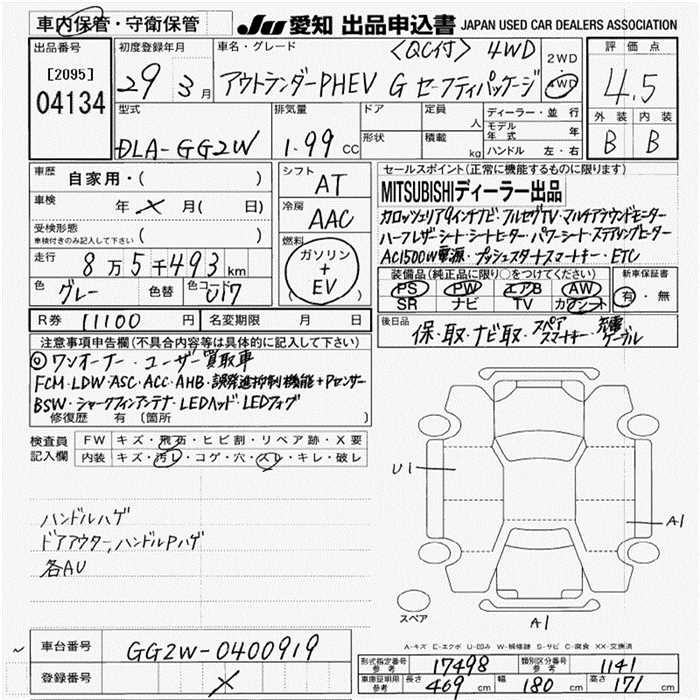 車内保管・守衛保管
JU 愛知 出品申込書 JAPAN USED CAR DEALERS ASSOCIATION
出品番号 [2095] 04134
初度登録年月 29年 3月
車名・グレード 〈QC付〉 4WD
アウトランダーPHEV G セーフティパッケージ
2WD
4WD
評価点 4.5
外装 B 内装 B
型式 DLA-GG2W
排気量 1.99 CC
ドア
形状
定員 人
積載 kg
ディーラー・並行
モデル年式 年
ハンドル 左・右
車歴 自家用・( )
車検 年 × 月( 日)
受検形態
車検付きのみ記入して下さい ( )
走行 8万5千493 km
色 グレー 色替 色コード U17
シフト AT
冷房 AAC
燃料 ガソリン + EV
R券 11100 円 名変期限 月 日
セールスポイント(正常に機能するものに限ります)
MITSUBISHIディーラー出品
カロッツェリア9インチナビ・フルセグTV・マルチアラウンドモニター
ハーフレザーシート・シートヒーター・パワーシート・ステアリングヒーター
AC1500W電源・プッシュスタートスマートキー・ETC
装備品(純正品に限り○をつけてください)
PS PW エアB AW
SR ナビ TV カワシート
新車保証書
有・無
後日品 保・取・ナビ取・スペアスマートキー・充電ケーブル
注意事項申告欄(不具合は具体的に記入して下さい)
◎ワンオーナー・ユーザー買取車
FCM・LDW・ASC・ACC・AHB・誤発進抑制機能+Pセンサー
BSW・シャークフィンアンテナ・LEDヘッド・LEDフォグ
修復歴 有 〔箇所 〕
検査員記入欄
FW キズ・飛石・ヒビ割・リペア跡・X要
内装 キズ・汚レ・コゲ・穴・スレ・キレ・破レ
ハンドルハゲ
ドアアウター,ハンドルPハゲ
各AU
U1
A1
A1
スペア
A-キズ E-エクボ U-凹み W-補修跡 S-サビ C-腐食 XX-交換済
〜 車台番号 GG2W-0400919
登録番号 ×
形式指定番号 参考 17498 類別区分番号 参考 1141
車庫証明用 参考 長さ 469 cm 幅 180 cm 高さ 171 cm